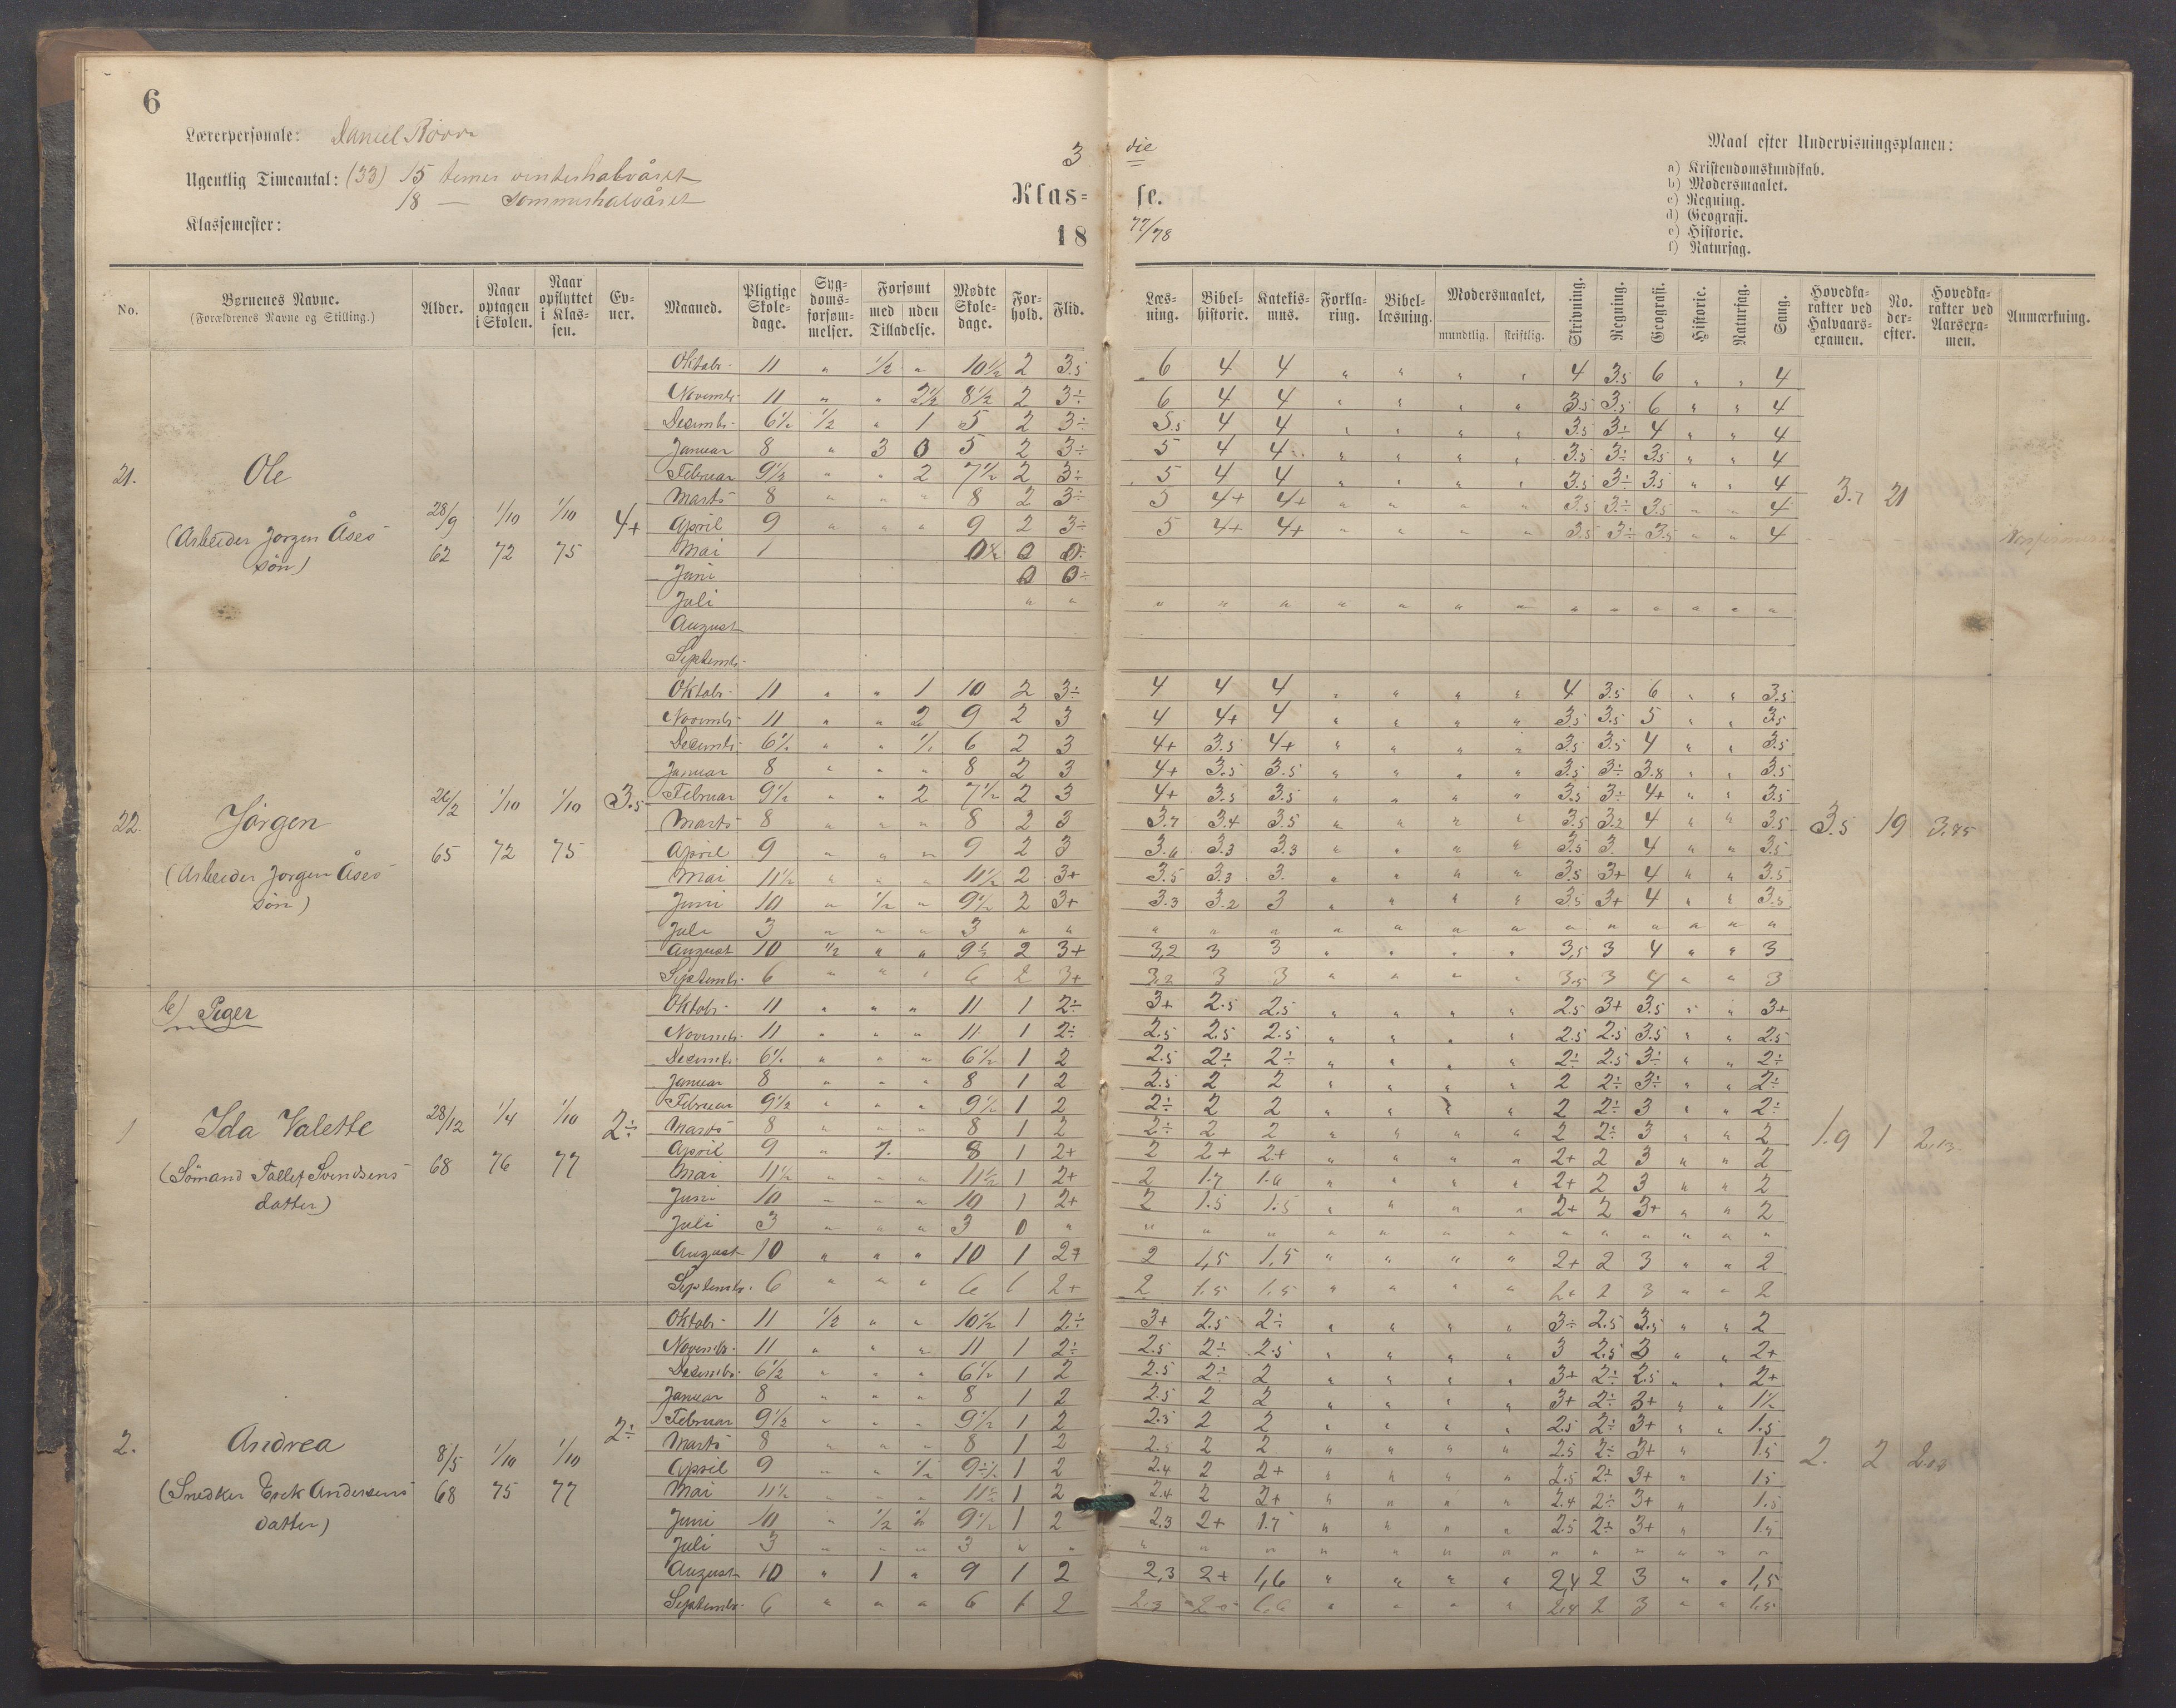 6
Lærerpersonale: Daniel
Ugentlig Timeantal: (33) 15 timer vinterhalvåret
18 — sommerhalvåret
Klassemester:
3 die
Klas= se.
18 77/78
Maal efter Undervisningsplanen:
a) Kristendomskundskab.
b) Modersmaalet.
c) Regning.
d) Geografi.
e) Historie.
f) Naturfag.
No. Børnenes Navne. (Forældrenes Navne og Stilling.) Alder. Naar optagen i Skolen. Naar opflyttet i Klassen. Evner. Maaned. Pligtige Skoledage. Sygdomsforsømmelser. Forsømt med uden Tilladelse. Mødte Skoledage. Forhold. Flid. Læsning. Bibelhistorie. Katekismus. Forklaring. Bibellæsning. Modersmaalet, mundtlig. skriftlig. Skrivning. Regning. Geografi. Historie. Naturfag. Sang. Hovedkarakter ved Halvaarsexamen. No. derefter. Hovedkarakter ved Aarsexamen. Anmærkning.
21. Ole (Arbeider Jørgen Åses søn) 28/9 62 1/10 72 1/10 75 4+ 3.7 21
Oktobr. 11 " 1/2 " 10 1/2 2 3.5 6 4 4 " " " " 4 3.5 6 " " 4
Novembr. 11 " " 2 1/2 8 1/2 2 3÷ 6 4 4 " " " " 3.5 3.5 6 " " 4
Decembr. 6 1/2 1/2 " 1 5 2 3÷ 5.5 4 4 " " " " 3.5 3÷ 4 " " 4
Januar 8 " 3 0 5 2 3÷ 5 4 4 " " " " 3.5 3÷ 3.5 " " 4
Februar 9 1/2 " " 2 7 1/2 2 3÷ 5 4 4 " " " " 3.5 3÷ 3.5 " " 4
Marts 8 " " " 8 2 3÷ 5 4+ 4+ " " " " 3.5 3÷ 3.5 " " 4
April 9 " " " 9 2 3÷ 5 4+ 4+ " " " " 3.5 3÷ 3.5 " " 4
Mai 1
Juni
Juli " " " " " " " " " " " " " " "
August
Septembr.
22. Jörgen (Arbeider Jørgen Åses søn) 26/2 65 1/10 72 1/10 75 3.5 3.5 19
Oktobr. 11 " " 1 10 2 3÷ 4 4 4 " " " " 4 3.5 6 " " 3.5
Novembr. 11 " " 2 9 2 3 4 4+ 4 " " " " 3.5 3.5 5 " " 3.5
Decembr. 6 1/2 " " 1/2 6 2 3 4+ 3.5 4+ " " " " 3.5 3.5 4 " " 3.5
Januar 8 " " " 8 2 3 4+ 3.5 3.5 " " " " 3.5 3÷ 3.8 " " 3.5
Februar 9 1/2 " " 2 7 1/2 2 3 4+ 3.5 3.5 " " " " 3.5 3÷ 4+ " " 3.5
Marts 8 " " " 8 2 3 3.7 3.4 3.5 " " " " 3.5 3.2 4 " " 3.5
April 9 " " " 9 2 3 3.6 3.3 3.3 " " " " 3.5 3. 4 " " 3.5
Mai 11 1/2 " " " 11 1/2 2 3+ 3.5 3.3 3. " " " " 3.5 3+ 4 " " 3.5
Juni 10 " 1/2 " 9 1/2 2 3+ 3.3 3.2 3 " " " " 3.5 3+ 4 " " 3.5
Juli 3 " " " 3 " " " " " " " " " " " " " " "
August 10 1/2 " " 9 1/2 2 3+ 3,2 3 3 " " " " 3,5 3 4 " " 3
Septembr. 6 " " " 6 2 3+ 3.2 3 3 " " " " 3.5 3 4 " " 3
b) Piger
1 Ida Valette (Sömand Tallef Svendsens datter) 28/12 68 1/4 76 1/10 77 2÷ 1.9 1 2.13
Oktobr. 11 " " " 11 1 2÷ 3+ 2.5 2.5 " " " " 2.5 3+ 3.5 " " 3+
Novembr. 11 " " " 11 1 2÷ 2.5 2.5 2.5 " " " " 2.5 2.5 3.5 " " 2.5
Decembr. 6 1/2 " " " 6 1/2 1 2 2.5 2÷ 2÷ " " " " 2÷ 2.5 3÷ " " 2÷
Januar 8 " " " 8 1 2 2.5 2 2 " " " " 2 2÷ 3÷ " " 2÷
Februar 9 1/2 " " " 9 1/2 1 2 2÷ 2 2 " " " " 2 2÷ 3 " " 2÷
Marts 8 " " " 8 1 2 2÷ 2 2 " " " " 2 2÷ 3 " " 2
April 9 " 1. 8 1 2+ 2 2+ 2+ " " " " 2+ 2 3 " " 2
Mai 11 1/2 " " " 11 1/2 1 2+ 2 1.7 1.6 " " " " 2+ 2 3 " " 2
Juni 10 " " " 10 1 2+ 2 1.5 1.5 " " " " 2+ 2 3+ " " 2
Juli 3 " " " 3 0 " " " " " " " " " " " " " "
August 10 " " " 10 1 2+ 2 1,5 1,5 " " " " 2+ 2 3 " " 2
Septembr. 6 " " " 6 1 2+ 2 1.5 1.5 " " " " 2+ 2 3 " " 2
2. Andrea (Snedker Erik Andersens datter) 8/5 68 1/10 75 1/10 77 2÷ 2. 2
Oktobr. 11 1/2 " " 10 1/2 1 2÷ 3+ 2.5 2÷ " " " " 3÷ 2.5 3.5 " " 2
Novembr. 11 " " " 11 1 2÷ 2.5 2÷ 2.5 " " " " 3 2.5 3 " " 2+
Decembr. 6 1/2 " " " 6 1/2 1 2 2.5 2÷ 2 " " " " 3+ 2÷ 2.5 " " 2+
Januar 8 " " " 8 1 2 2.5 2 2 " " " " 3+ 2÷ 3+ " " 1 1/2
Februar 9 1/2 " " " 9 1/2 1 2 2.5 2 2 " " " " 2.5 2÷ 3+ " " 1.5
Marts 8 " " " 8 1 2 2.5 2 2 " " " " 2.5 2÷ 3+ " 1.5
April 9 " " 1/2 1 2 2.4 2 2+ " " " " 2.5 2÷ 3+ " 1.5
Mai 11 1/2 " " " 11 1/2 1 2 2.4 2 2+ " " " " 2.4 2÷ 3+ " 1.5
Juni 10 " 1/2 9 1/2 1 2 2.3 2+ 1.7 " " " " 2.5 2÷ 3+ " 1.5
Juli 3 " " " 3 " " " " " " " " " " " " " " "
August 10 " 1 " 9 1 2 2,3 2+ 1,6 " " " " 2,4 2 3 " " 1,5
Septembr. 6 " " " 6 1 2 2.3 " " " " 2.4 2 3 " " 1.5